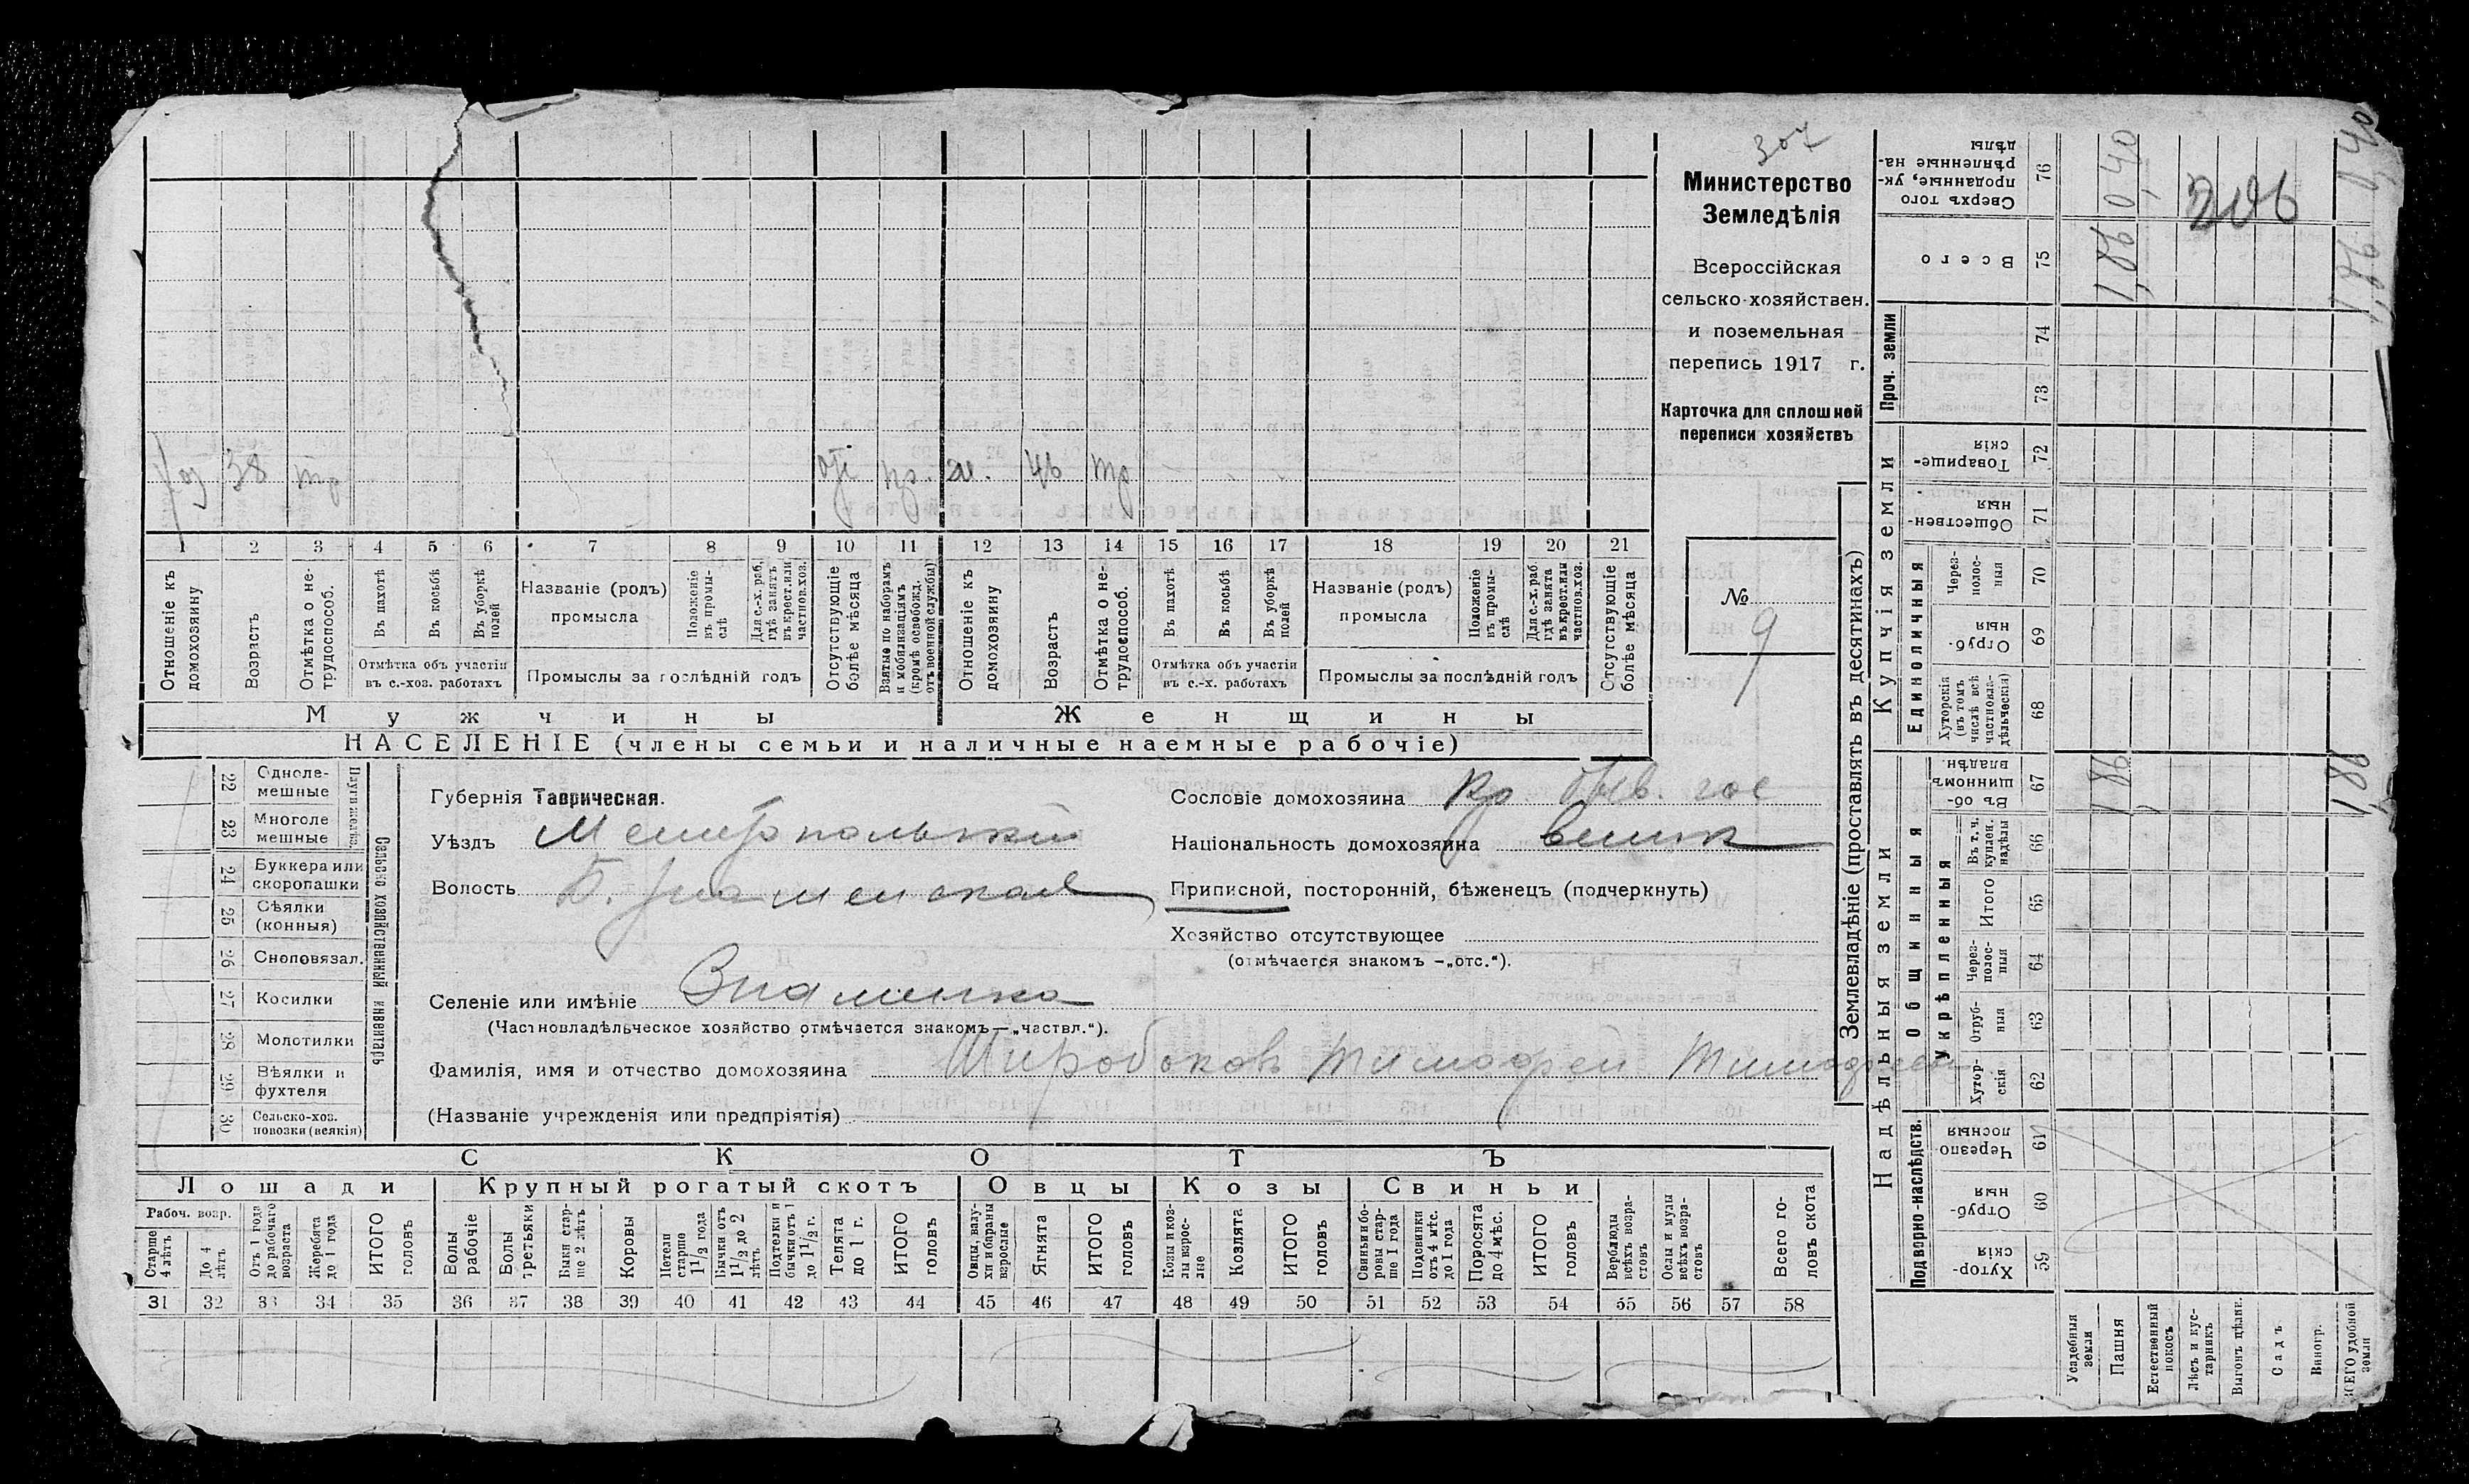 307
Министерство
Земледѣлія
Всероссійская
сельско-хозяйствен.
и поземельная
перепись 1917 г.
Карточка для сплошной
переписи хозяйствъ
№
9
38 тр
пр. 46 тр
1 2 3 4 5 6 7 8 9 10 11 12 13 14 15 16 17 18 19 20 21
Отношеніе къ домохозяину
Возрасть
Отмѣтка о не-трудоспособ.
Въ пахотѣ
Въ косьбѣ
Въ уборкѣ полей
Отмѣтка объ участіи въ с.-хоз. работахъ
Названіе (родъ) промысла
Положеніе въ промы-слѣ
Для с.-х. раб., гдѣ занятъ въ крест. или частнов. хоз.
Промыслы за послѣдній годъ
Отсутствующіе болѣе мѣсяца
Взятые по наборамъ и мобилизаціямъ (кромѣ освобожд. отъ военной службы)
Отношеніе къ домохозяину
Возрасть
Отмѣтка о не-трудоспособ.
Въ пахотѣ
Въ косьбѣ
Въ уборкѣ полей
Отмѣтка объ участіи въ с.-х. работахъ
Названіе (родъ) промысла
Положеніе въ промы-слѣ
Для с.-х. раб. гдѣ занята въ крест. или частнов. хоз.
Промыслы за послѣдній годъ
Отсутствующіе болѣе мѣсяца
Мужчины Женщины
НАСЕЛЕНІЕ (члены семьи и наличные наемные рабочіе)
Сельско хозяйственный инвентарь
22 Одноле-мешные
23 Многоле мешные
24 Буккера или скоропашки
25 Сѣялки (конныя)
26 Сноповязал.
27 Косилки
28 Молотилки
29 Вѣялки и фухтеля
30 Сельско-хоз. повозки (всякія)
Губернія Таврическая.
Уѣздъ Мелитопольскій
Волость Б. Знаменская
Селеніе или имѣніе Знаменка
(Частновладѣльческое хозяйство отмѣчается знакомъ—„частвл.“).
Фамилія, имя и отчество домохозяина Широбоковъ Тимофей Тимофеев
(Названіе учрежденія или предпріятія)
Сословіе домохозяина кр. быв. гос
Національность домохозяина велик
Приписной, посторонній, бѣженецъ (подчеркнуть)
Хозяйство отсутствующее
(отмѣчается знакомъ —„отс.“).
СКОТЪ
Лошади Крупный рогатый скотъ Овцы Козы Свиньи
Рабоч. возр.
Старше 4 лѣтъ
До 4 лѣтъ
Отъ 1 года до рабочаго возраста
Жеребята до 1 года
ИТОГО головъ
Волы рабочіе
Волы третьяки
Быки стар-ше 2 лѣтъ
Коровы
Нетели старше 1½ года
Бычки отъ 1½ до 2 лѣтъ
Подтелки и бычки отъ 1 до 1½ г.
Телята до 1 г.
ИТОГО головъ
Овцы, валу-хи и бараны взрослые
Ягнята
ИТОГО головъ
Козы и коз-лы взрос-лые
Козлята
ИТОГО головъ
Свиньи и бо-ровы стар-ше 1 года
Подсвинки отъ 4 мѣс. до 1 года
Поросята до 4 мѣс.
ИТОГО головъ
Верблюды всѣхъ возра-стовъ
Ослы и мулы всѣхъ возра-стовъ
Всего го-ловъ скота
31 32 33 34 35 36 37 38 39 40 41 42 43 44 45 46 47 48 49 50 51 52 53 54 55 56 57 58
Землевладѣніе (проставлять въ десятинахъ)
Надѣльныя земли Купчія земли Проч. земли
Подворно-наслѣдств.
Общинныя
Укрѣпленныя
Единоличныя
59 Хутор-скія
60 Отруб-ныя
61 Черезпо лосныя
62 Хутор-скія
63 Отруб-ныя
64 Через-полос-ныя
65 Итого
66 Въ т. ч. куплен. надѣлы
67 Въ об-щинномъ владѣн.
68 Хуторскія (въ томъ числѣ всѣ частновла-дѣльческія)
69 Отруб-ныя
70 Через-полос-ныя
71 Обществен-ныя
72 Товарище-скія
73
74
75 Всего
76 Сверхъ того проданные, ук-рѣпленные на-дѣлы
Усадебныя земли
Пашня 1,86 1,86 0,40
Естественный покосъ
Лѣсъ и кус-тарникъ
Выгонъ цѣлик.
Садъ
Виногр.
ВСЕГО удобной земли 1,86 1,86 0,40
206